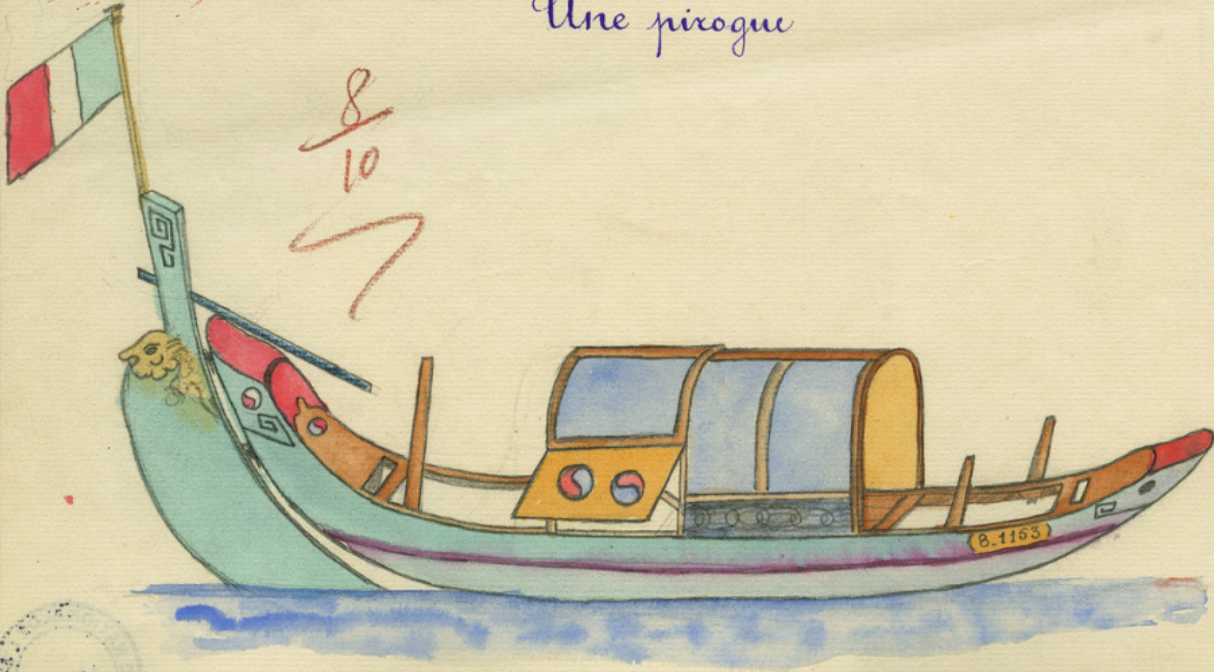 Une pirogue
8
10
8_1163